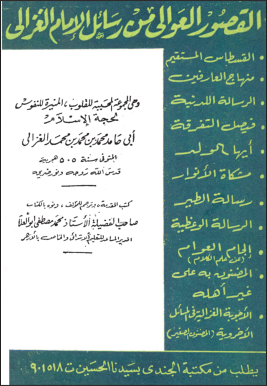 القصور العوالى من رسائل الإمام الغزالى
القسطاس المستقيم
منهاج العارفين
الرسالة اللدنية
فيصل التفرقة
أيها الولد
مشكاة الأنوار
رسالة الطير
الرسالة الوعظية
إلجام العوام
(عن علم الكلام)
المضنون به على
غير أهله
الأجوبة الغزالية فى المسائل
الأخروية (المضنون الصغير)
وهى المجموعة المحببة للقلوب، المنيرة للنفوس
لحجة الإسلام
أبى حامد محمد بن محمد بن محمد الغزالى
المتوفى سنة ٥٠٥ هجرية
قدس الله روحه ونور ضريحه
كتب المقدمة، وترجم للمؤلف، ونوه بالكتاب
صاحب الفضيلة الأستاذ محمد مصطفى أبو العلا
يطلب من مكتبة الجندى بسيدنا الحسين ت ٩٠١٥١٨